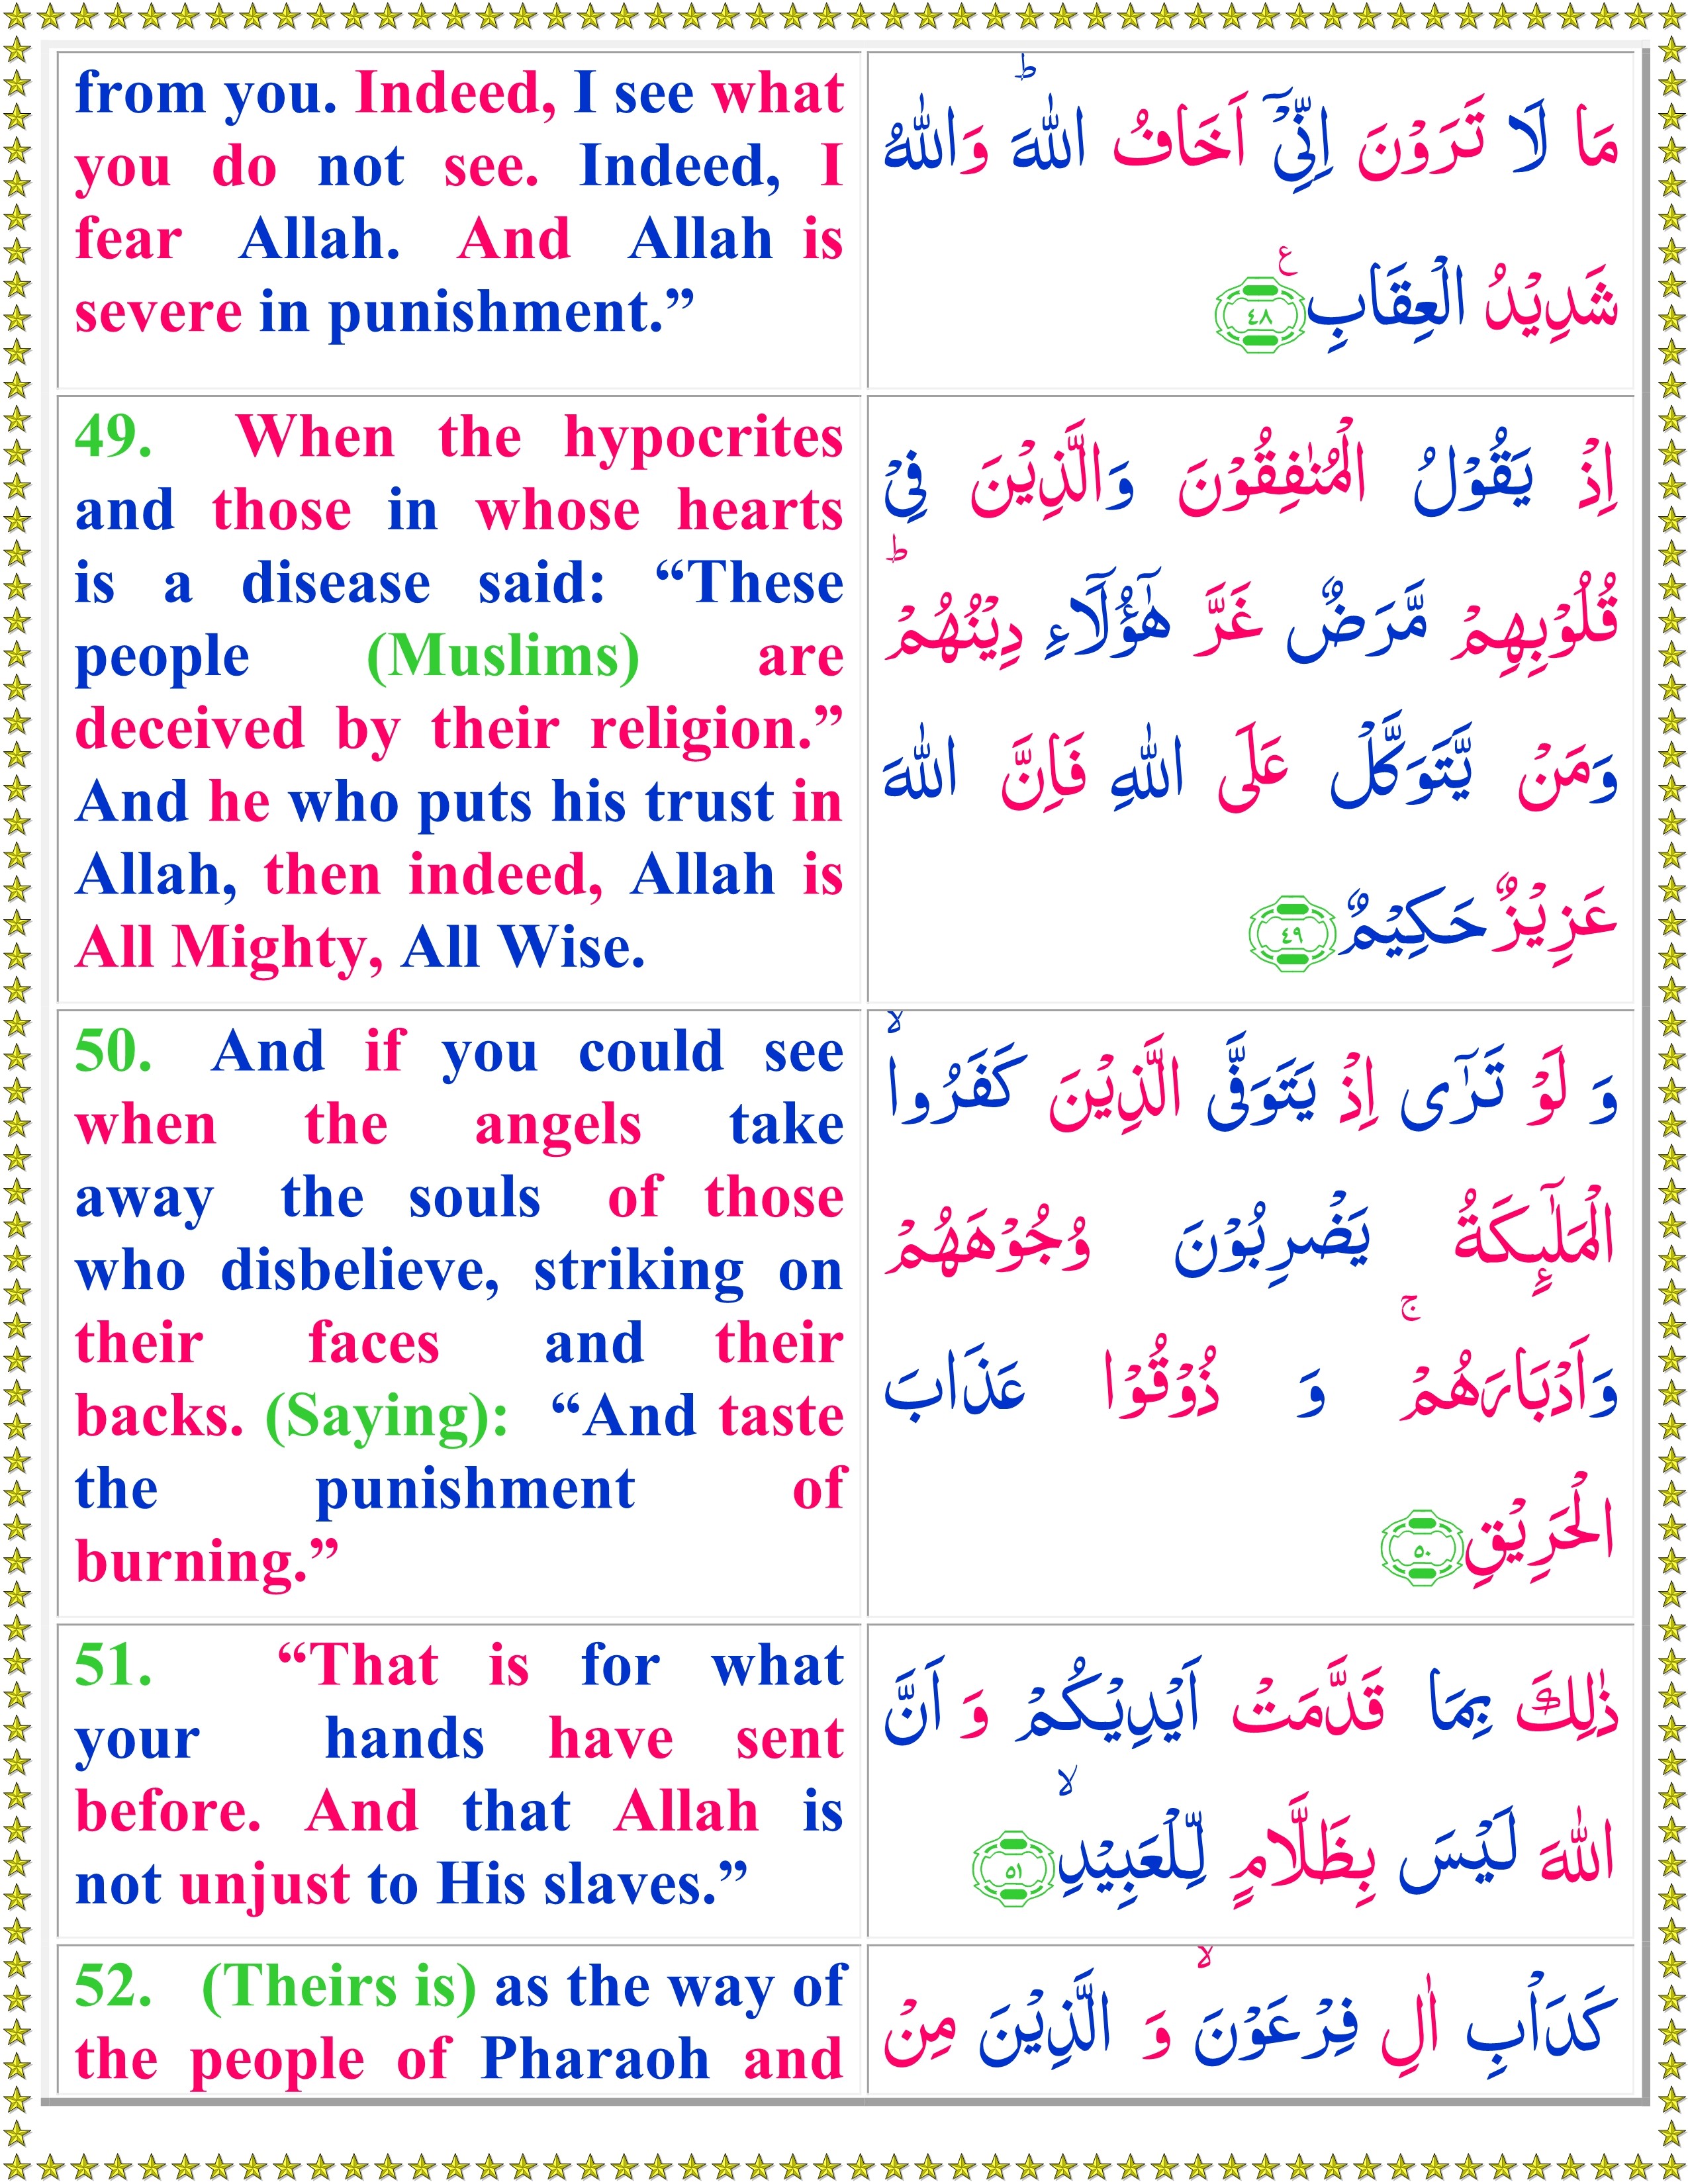 from you. Indeed, I see what
you do not see. Indeed, I
fear Allah. And Allah is
severe in punishment.”
مَا لَا تَرَوْنَ اِنِّیْۤ اَخَافُ اللّٰهَ ؕ وَاللّٰهُ
شَدِیْدُ الْعِقَابِ ۠ ﴿٤٨﴾
49. When the hypocrites
and those in whose hearts
is a disease said: “These
people (Muslims) are
deceived by their religion.”
And he who puts his trust in
Allah, then indeed, Allah is
All Mighty, All Wise.
اِذْ یَقُوْلُ الْمُنٰفِقُوْنَ وَالَّذِیْنَ فِیْ
قُلُوْبِهِمْ مَّرَضٌ غَرَّ هٰۤؤُلَآءِ دِیْنُهُمْ ؕ
وَمَنْ یَّتَوَكَّلْ عَلَی اللّٰهِ فَاِنَّ اللّٰهَ
عَزِیْزٌ حَكِیْمٌ ﴿٤٩﴾
50. And if you could see
when the angels take
away the souls of those
who disbelieve, striking on
their faces and their
backs. (Saying): “And taste
the punishment of
burning.”
وَ لَوْ تَرٰۤی اِذْ یَتَوَفَّی الَّذِیْنَ كَفَرُوا ۙ
الْمَلٰٓىِٕكَةُ یَضْرِبُوْنَ وُجُوْهَهُمْ
وَاَدْبَارَهُمْ ۚ وَ ذُوْقُوْا عَذَابَ
الْحَرِیْقِ ﴿٥٠﴾
51. “That is for what
your hands have sent
before. And that Allah is
not unjust to His slaves.”
ذٰلِكَ بِمَا قَدَّمَتْ اَیْدِیْكُمْ وَ اَنَّ
اللّٰهَ لَیْسَ بِظَلَّامٍ لِّلْعَبِیْدِ ۙ ﴿٥١﴾
52. (Theirs is) as the way of
the people of Pharaoh and
كَدَاْبِ اٰلِ فِرْعَوْنَ ۙ وَ الَّذِیْنَ مِنْ